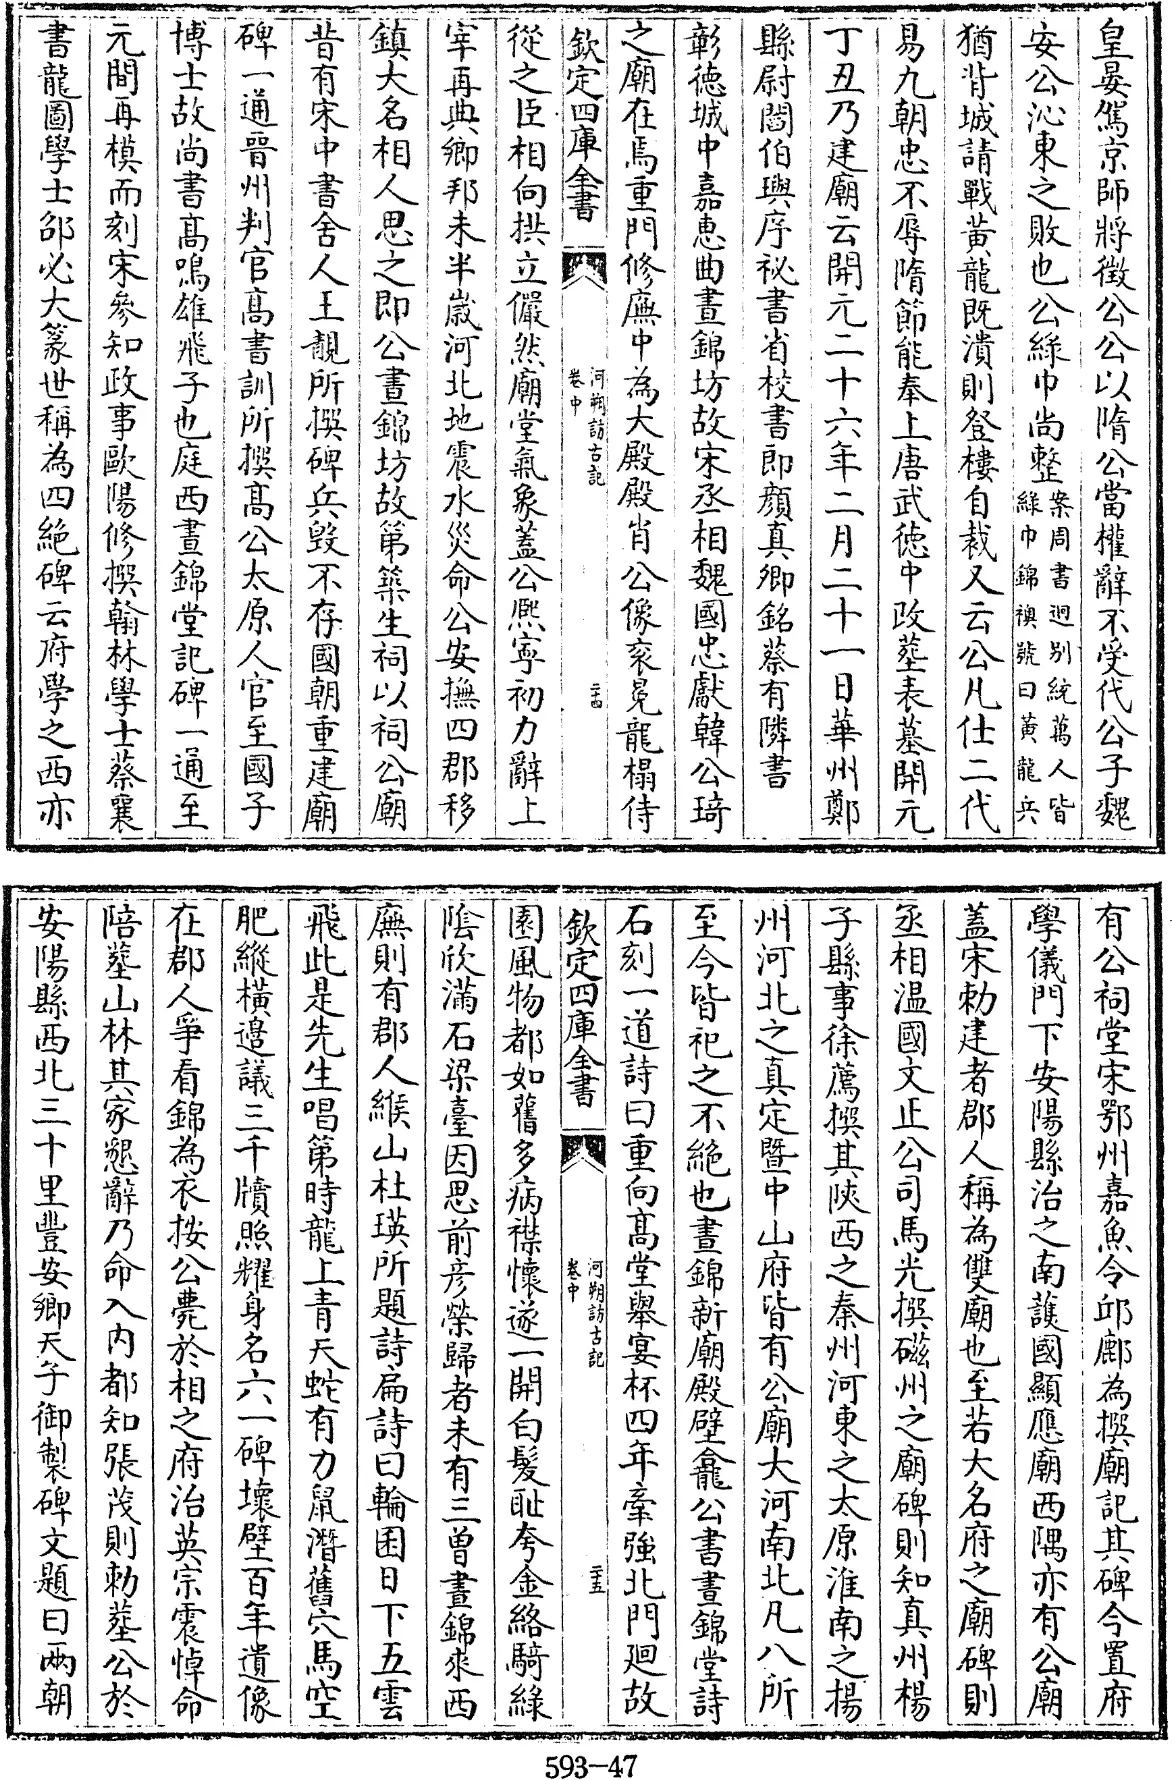 皇晏駕京師將徵公公以隋公當權辭不受代公子魏
安公沁東之敗也公綠巾尚整案周書迥别統萬人皆綠巾錦襖號曰黄龍兵
猶背城請戰黄龍既潰則登樓自裁又云公凡仕二代
易九朝忠不辱隋節能奉上唐武徳中改塟表墓開元
丁丑乃建廟云開元二十六年二月二十一日華州鄭
縣尉閻伯璵序祕書省校書郎顔真卿銘蔡有隣書
彰徳城中嘉惠曲晝錦坊故宋丞相魏國忠獻韓公琦
之廟在焉重門修廡中為大殿殿肖公像衮冕龍榻侍
欽定四庫全書
河朔訪古記
卷中
二十四
從之臣相向拱立儼然廟堂氣象蓋公熈寧初力辭上
宰再典鄉邦未半嵗河北地震水災命公安撫四郡移
鎮大名相人思之即公晝錦坊故第築生祠以祠公廟
昔有宋中書舍人王覿所撰碑兵毁不存國朝重建廟
碑一通晉州判官髙書訓所撰髙公太原人官至國子
博士故尚書髙鳴雄飛子也庭西晝錦堂記碑一通至
元間再模而刻宋參知政事歐陽修撰翰林學士蔡襄
書龍圖學士邵必大篆世稱為四絶碑云府學之西亦
有公祠堂宋鄂州嘉魚令邱鄜為撰廟記其碑今置府
學儀門下安陽縣治之南䕶國顯應廟西隅亦有公廟
蓋宋勅建者郡人稱為雙廟也至若大名府之廟碑則
丞相温國文正公司馬光撰磁州之廟碑則知真州楊
子縣事徐薦撰其陜西之秦州河東之太原淮南之揚
州河北之真定暨中山府皆有公廟大河南北凡八所
至今皆祀之不絶也晝錦新廟殿壁龕公書晝錦堂詩
石刻一道詩曰重向髙堂舉宴杯四年牽強北門廻故
欽定四庫全書
河朔訪古記
卷中
二十五
園風物都如舊多病襟懷遂一開白髪耻夸金絡騎綠
隂欣滿石梁臺因思前彦榮歸者未有三曽晝錦來西
廡則有郡人緱山杜瑛所題詩扁詩曰輪囷日下五雲
飛此是先生唱第時龍上青天蛇有力鼠潛舊穴馬空
肥縱横邉議三千牘照耀身名六一碑壞壁百年遺像
在郡人爭看錦為衣按公薨於相之府治英宗震悼命
陪塟山林其家懇辭乃命入内都知張茂則勅塟公於
安陽縣西北三十里豐安鄉天子御製碑文題曰兩朝
593-47